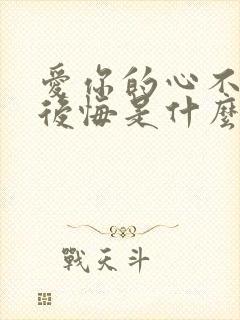 愛你的心不
後悔是什麼
戰天斗